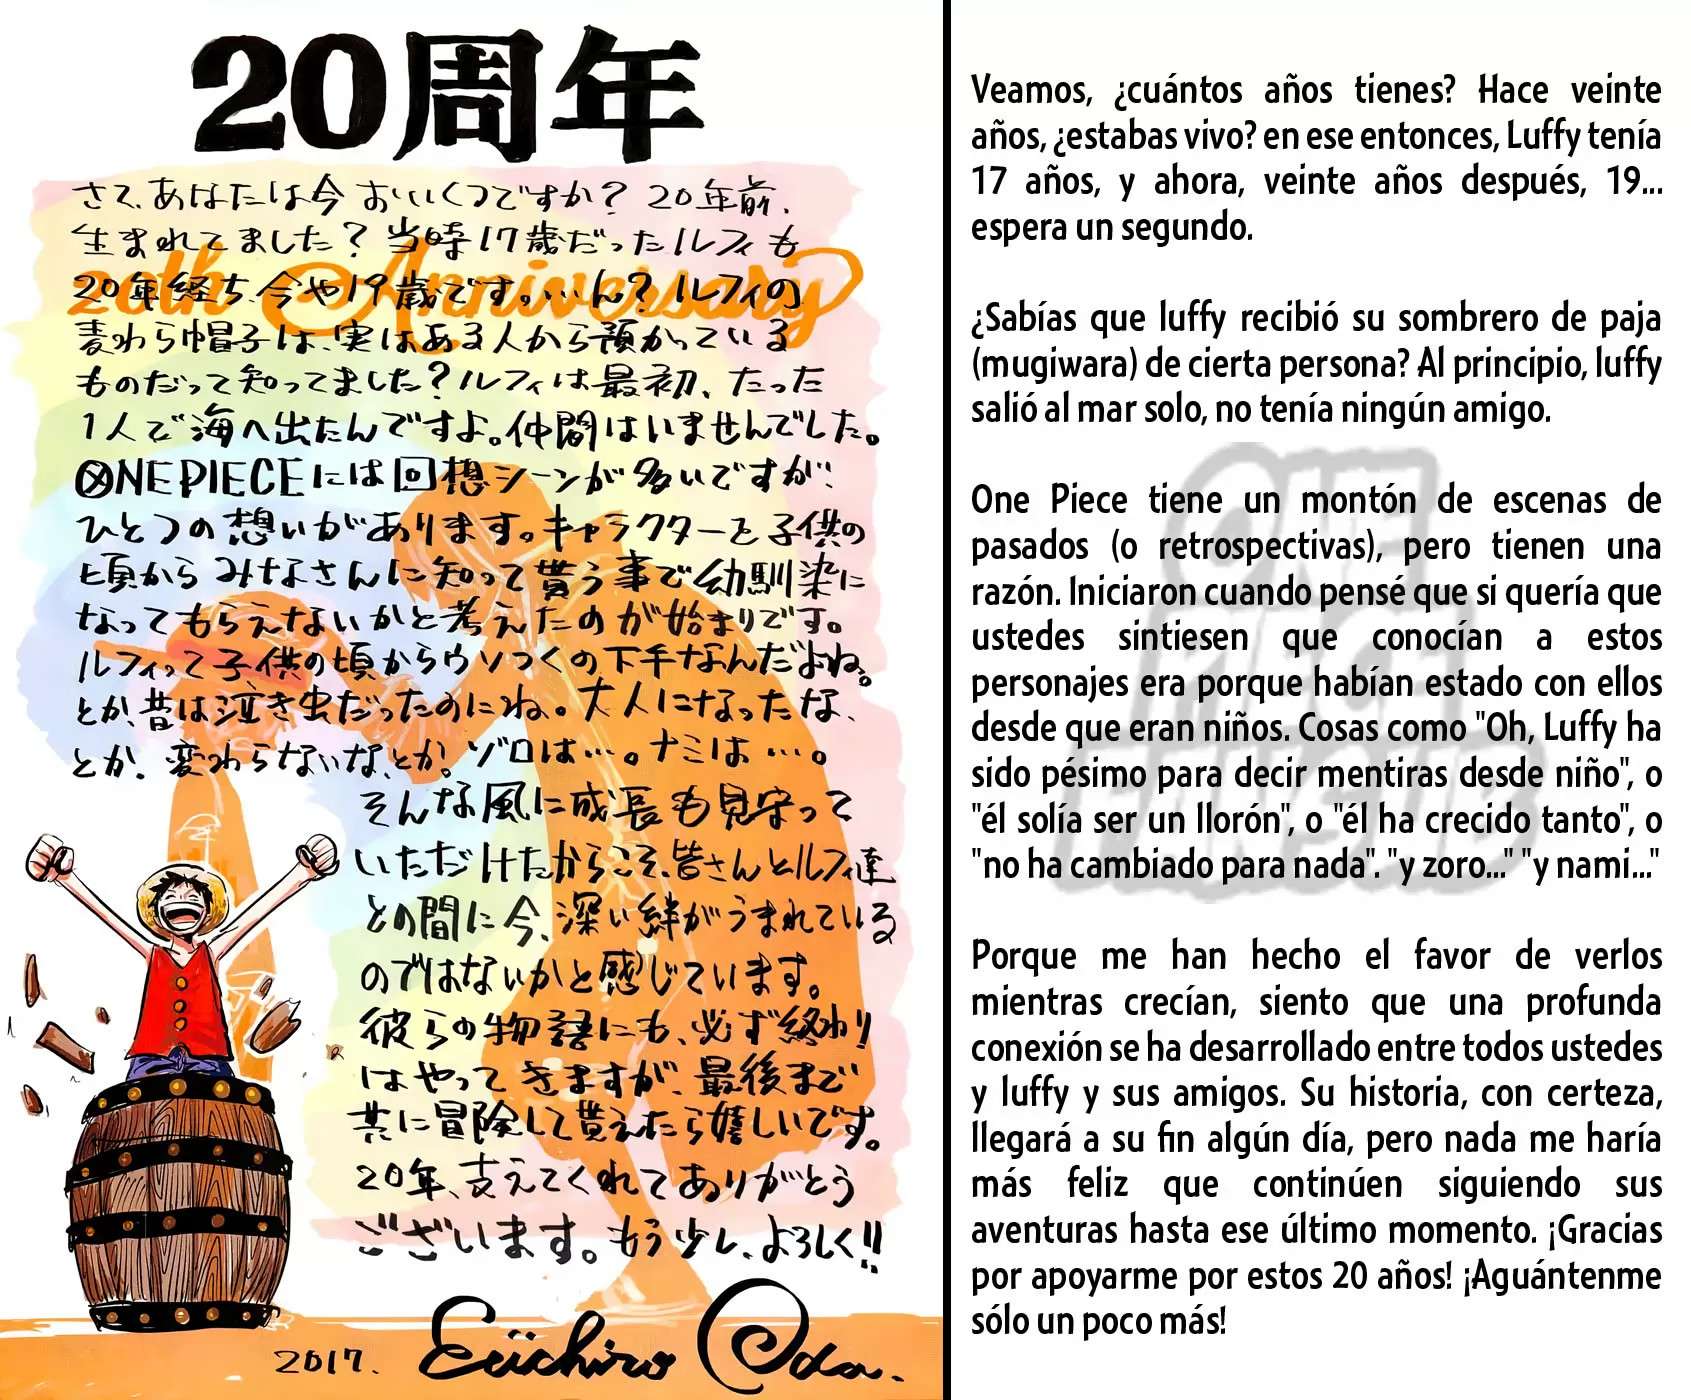 20周年
さて、あなたは今おいくつですか？20年前、
生まれてました？当時17歳だったルフィも
20th Anniversary
20年経ち、今や19歳です。…ん？ルフィの
麦わら帽子は、実はある人から預かっている
ものだって知ってました？ルフィは最初、たった
1人で海へ出たんですよ。仲間はいませんでした。
ONE PIECEには回想シーンが多いですが、
ひとつの想いがあります。キャラクターを子供の
頃からみなさんに知って貰う事で幼馴染に
なってもらえないかと考えたのが始まりです。
ルフィって子供の頃からウソつくの下手なんだよね。
とか、昔は泣き虫だったのにね。大人になったな、
とか、変わらないな、とか。ゾロは…。ナミは…。
そんな風に成長も見守って
いただけたからこそ、皆さんとルフィ達
との間に今、深い絆がうまれている
のではないかと感じています。
彼らの物語にも、必ず終わり
はやってきますが、最後まで
共に冒険して貰えたら嬉しいです。
20年、支えてくれてありがとう
ございます。もう少し、よろしく!!
2017. Eiichiro Oda.
Veamos, ¿cuántos años tienes? Hace veinte
años, ¿estabas vivo? en ese entonces, Luffy tenía
17 años, y ahora, veinte años después, 19...
espera un segundo.
¿Sabías que luffy recibió su sombrero de paja
(mugiwara) de cierta persona? Al principio, luffy
salió al mar solo, no tenía ningún amigo.
One Piece tiene un montón de escenas de
pasados (o retrospectivas), pero tienen una
razón. Iniciaron cuando pensé que si quería que
ustedes sintiesen que conocían a estos
personajes era porque habían estado con ellos
desde que eran niños. Cosas como "Oh, Luffy ha
sido pésimo para decir mentiras desde niño", o
"él solía ser un llorón", o "él ha crecido tanto", o
"no ha cambiado para nada". "y zoro..." "y nami..."
Porque me han hecho el favor de verlos
mientras crecían, siento que una profunda
conexión se ha desarrollado entre todos ustedes
y luffy y sus amigos. Su historia, con certeza,
llegará a su fin algún día, pero nada me haría
más feliz que continúen siguiendo sus
aventuras hasta ese último momento. ¡Gracias
por apoyarme por estos 20 años! ¡Aguántenme
sólo un poco más!